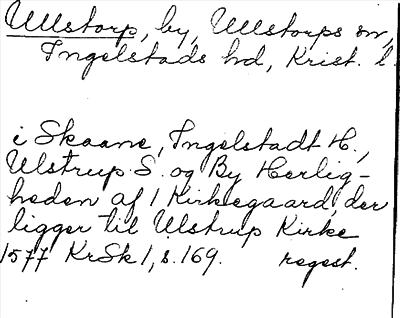 Ullstorp, by, Ullstorps sn,
Ingelstads hd, Krist. l.
i Skaane, Ingelstadt H.,
Ulstrup S. og By Herlig-
heden af 1 Kirkegaard, der
ligger til Ulstrup Kirke
1577 KrSk 1, s. 169. regest.